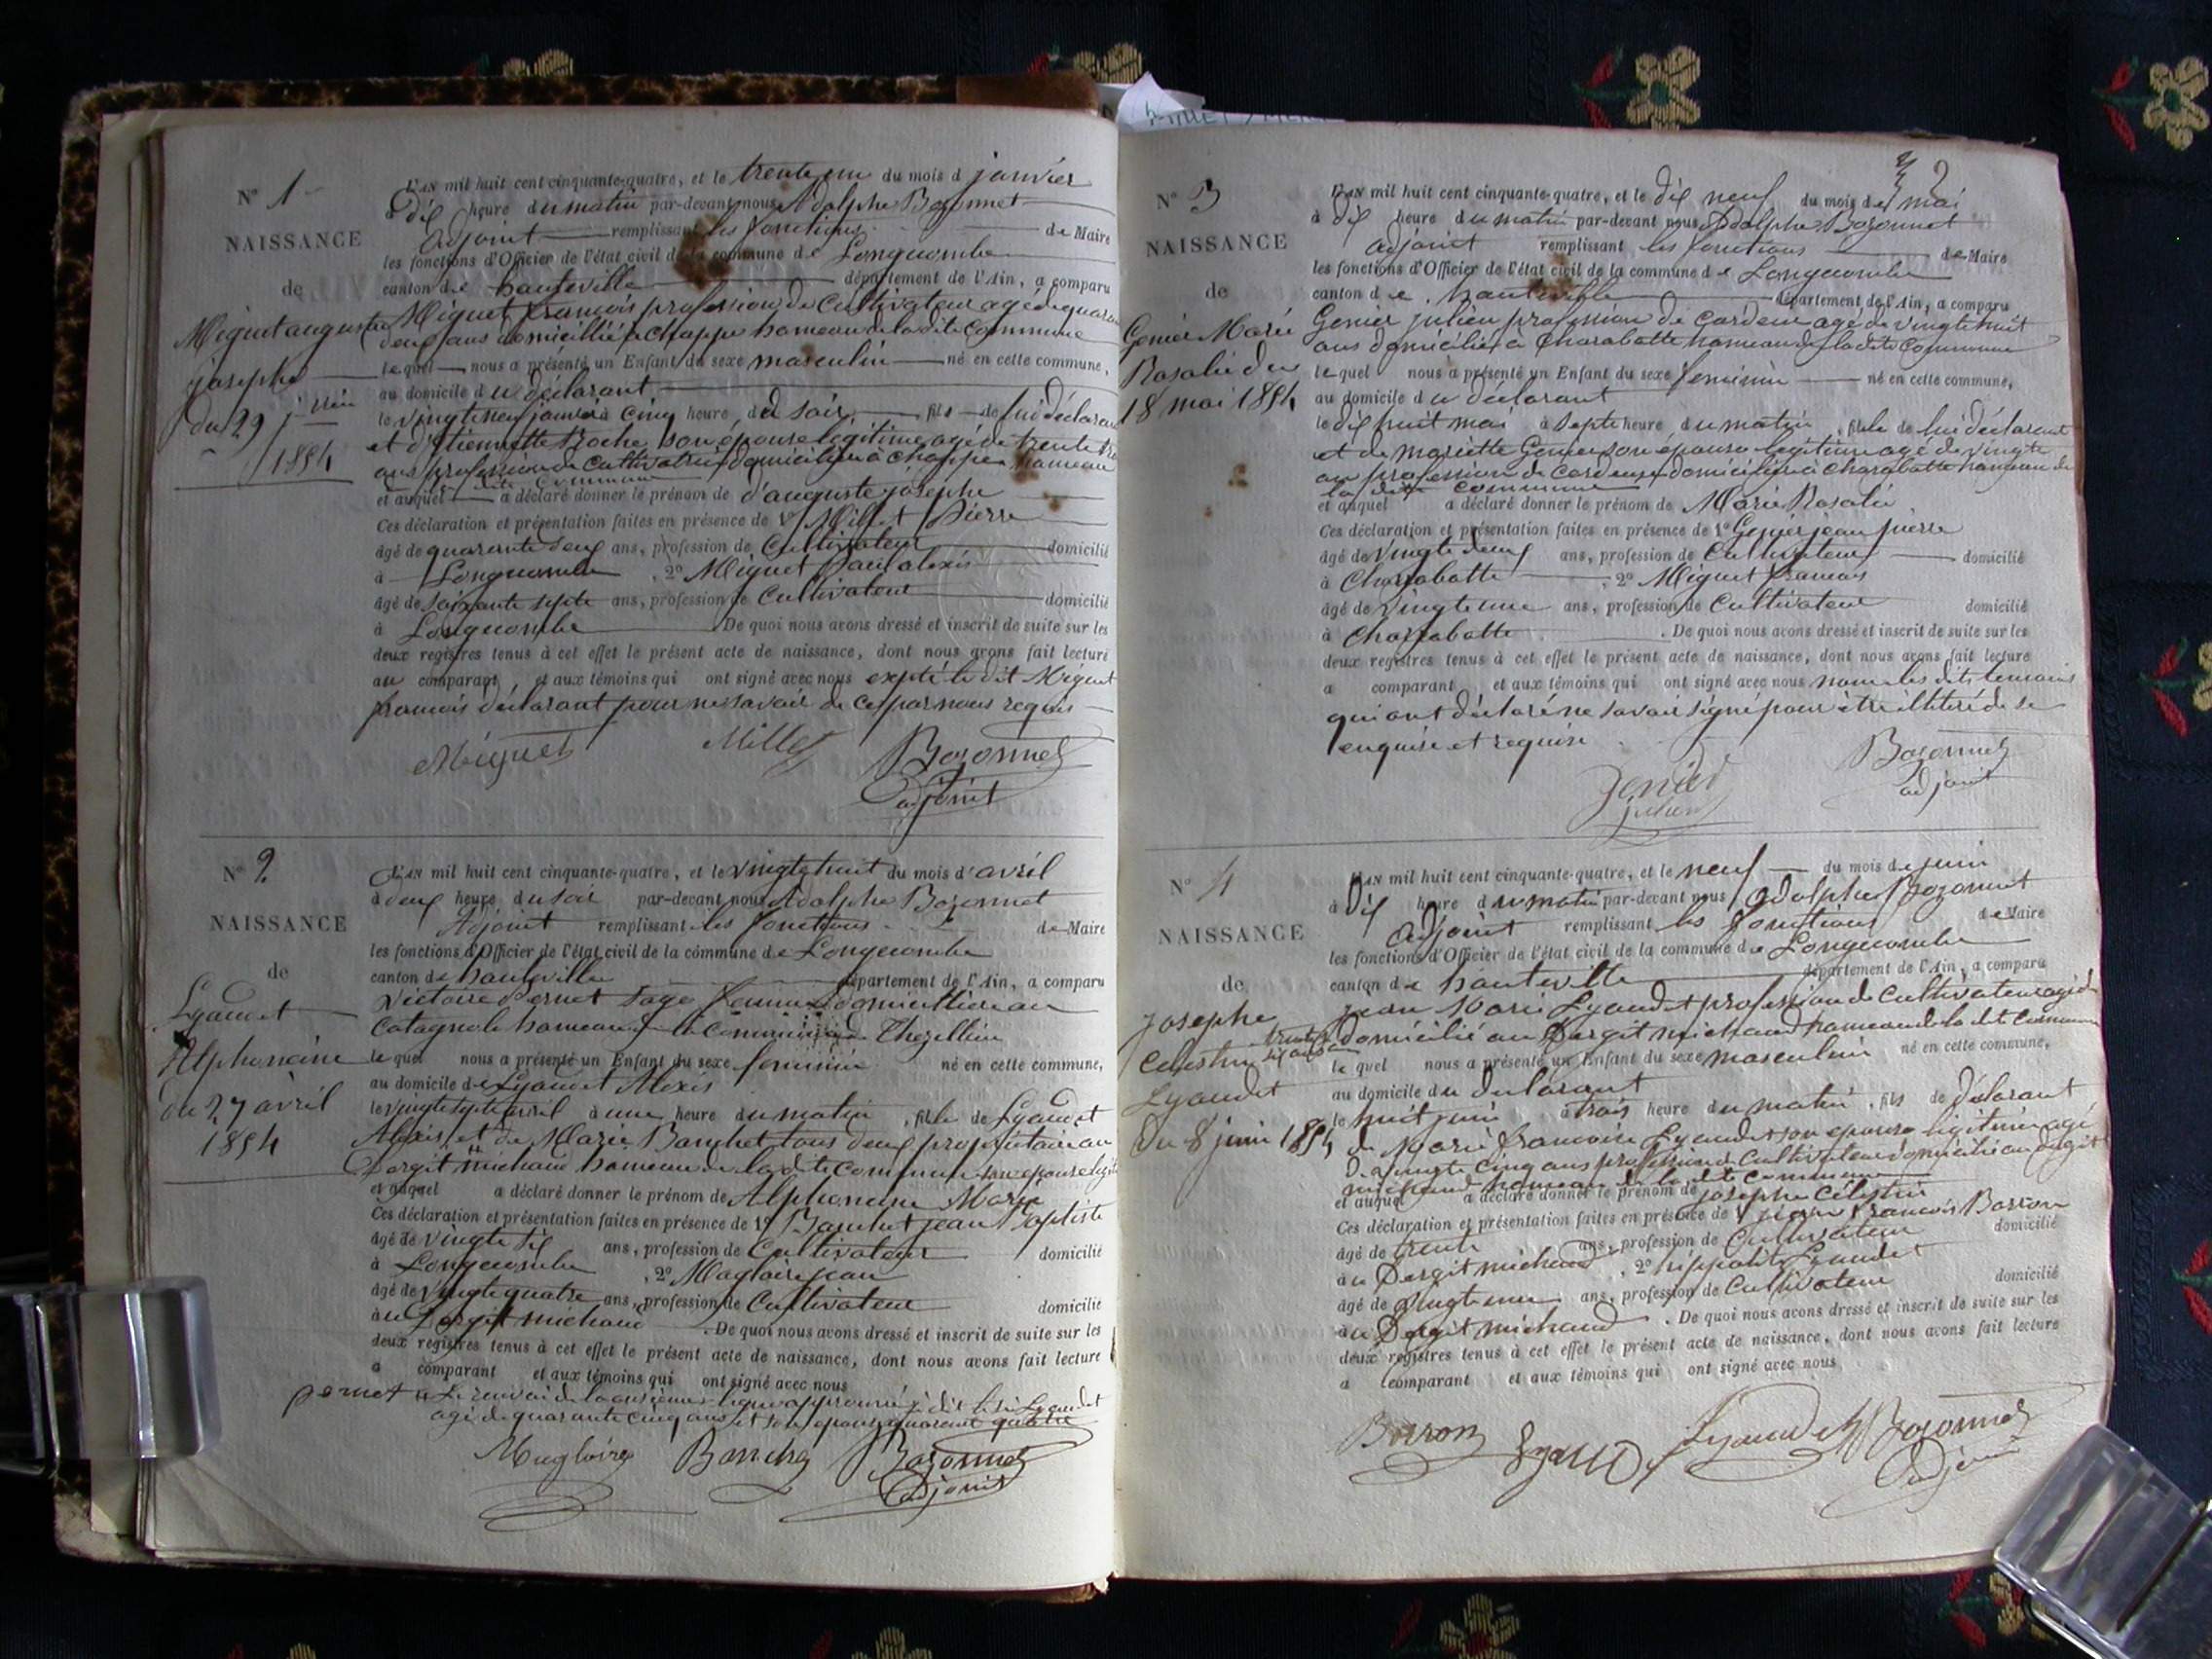 N° 1
NAISSANCE
de
Miguet auguste
josephe
du 29 j.vier
1854
L'AN mil huit cent cinquante-quatre, et le trente un du mois d janvier
à dix heure du matin par-devant nous Adolphe Bozonnet
Adjoint remplissant les fonctions de Maire
les fonctions d'Officier de l'état civil de la commune de Longecombe
canton de hauteville département de l'Ain, a comparu
Miguet françois profession de Cultivateur agé de quarante
deux ans domicillié à chappe hameau de la dite Commune
lequel nous a présenté un Enfant du sexe masculin né en cette commune,
au domicile du déclarant
le vingt neuf janvier à cinq heure du soir fils de lui déclarant
et d'Etiennette Roche son épouse légitime agé de trente
ans profession de cultivatrice domiciliée à chappe hameau
de la dite Commune
et auquel a déclaré donner le prénom de d'auguste josephe
Ces déclaration et présentation faites en présence de 1° Millet Pierre
âgé de quarante deux ans, profession de Cultivateur domicilié
à Longecombe , 2° Miguet Paul alexis
âgé de soixante septe ans, profession de Cultivateur domicilié
à Longecombe De quoi nous avons dressé et inscrit de suite sur les
deux registres tenus à cet effet le présent acte de naissance, dont nous avons fait lecture
au comparant, et aux témoins qui ont signé avec nous expté le dit Miguet
francois déclarant pour ne savoir de ce par nous requis
Miguet Millet Bozonnet
adjoint
N° 2
NAISSANCE
de
Lyaudet
Alphonsine
du 27 avril
1854
L'AN mil huit cent cinquante-quatre, et le vingt huit du mois d'avril
à deux heure du soir par-devant nous Adolphe Bozonnet
Adjoint remplissant les fonctions de Maire
les fonctions d'Officier de l'état civil de la commune de Longecombe
canton de hauteville département de l'Ain, a comparu
Victoire Pernet sage femme domicilliée au
Catagnole hameau de la Commune de Thezillieu
lequel nous a présenté un Enfant du sexe feminin né en cette commune,
au domicile de Lyaudet Alexis
le vingt septe avril à une heure du matin , fille de Lyaudet
Alexis, et de Marie Banchet tous deux propriétaire au
Dergit michaud hameau de la dite commune son epouse legit
et auquel a déclaré donner le prénom de Alphonsine Marie
Ces déclaration et présentation faites en présence de 1° Banchet jean Baptiste
âgé de vingte six ans, profession de Cultivateur domicilié
à Longecombe , 2° Magloire jean
âgé de vingte quatre ans, profession de Cultivateur domicilié
à au Dergit michaud De quoi nous avons dressé et inscrit de suite sur les
deux registres tenus à cet effet le présent acte de naissance, dont nous avons fait lecture
a comparant et aux témoins qui ont signé avec nous
pernet Le renvoi de la onsième ligne approuvé dit le Lyaudet
agé de quarante cinq ans et son epouse quarant quatre
Magloire Banchet Bozonnet
Adjoint
2
N° 3
NAISSANCE
de
Genier Marie
Rosalie du
18 mai 1854
L'AN mil huit cent cinquante-quatre, et le dix neuf du mois de mai
à dix heure du matin par-devant nous Adolphe Bozonnet
adjoint remplissant les fonctions de Maire
les fonctions d'Officier de l'état civil de la commune de Longecombe
canton de hauteville département de l'Ain, a comparu
Genier julien profession de Cardeur agé de vingt huit
ans domicilié à Charabotte hameau de la dite Commune
lequel nous a présenté un Enfant du sexe feminin né en cette commune,
au domicile du déclarant
le dix huit mai à septe heure du matin , fille de lui déclarant
et de mariette Genier son épouse legitime agé de vingte
an profession de cardeuse domiciliée à charabotte hameau de
la dite commune
et auquel a déclaré donner le prénom de Marie Rosalie
Ces déclaration et présentation faites en présence de 1° Genier jean pierre
âgé de vingte deux ans, profession de Cultivateur domicilié
à Charabotte , 2° Miguet francois
âgé de vingte une ans, profession de Cultivateur domicilié
à Charabotte . De quoi nous avons dressé et inscrit de suite sur les
deux registres tenus à cet effet le présent acte de naissance, dont nous avons fait lecture
a comparant et aux témoins qui ont signé avec nous non les dits temoins
qui ont déclaré ne savoir signé pour être illitéré de se
enquise et requise
Genier
julien
Bozonnet
adjoint
N° 4
NAISSANCE
de
Josephe
Celestin
Lyaudet
Du 8 juin 1854
L'AN mil huit cent cinquante-quatre, et le neuf du mois de juin
à Dix heure du matin par-devant nous Adolphe Bozonnet
Adjoint remplissant les fonctions de Maire
les fonctions d'Officier de l'état civil de la commune de Longecombe
canton de hauteville département de l'Ain, a comparu
jean Marie Lyaudet profession de Cultivateur agé d
trente six ans domicilié au Dergit michaud hameau de la dite Commune
lequel nous a présenté un Enfant du sexe masculin né en cette commune,
au domicile du declarant
le huit juin à trois heure du matin , fils de déclarant
de Marie francoise Lyaudet son epouse legitime agé
De vingte cinq ans profession de Cultivateur domicilié au dergit
michaud hameau de la dite Commune
et auquel a déclaré donner le prénom de josephe Célestin
Ces déclaration et présentation faites en présence de 1° jean francois Barron
âgé de trente ans, profession de Cultivateur domicilié
à au Dergit michaud , 2° hippolite Lyaudet
âgé de vingte une ans, profession de Cultivateur domicilié
à au Dergit michaud . De quoi nous avons dressé et inscrit de suite sur les
deux registres tenus à cet effet le présent acte de naissance, dont nous avons fait lecture
a comparant et aux témoins qui ont signé avec nous
Barron Lyaudet Lyaudet Bozonnet
Adjoint